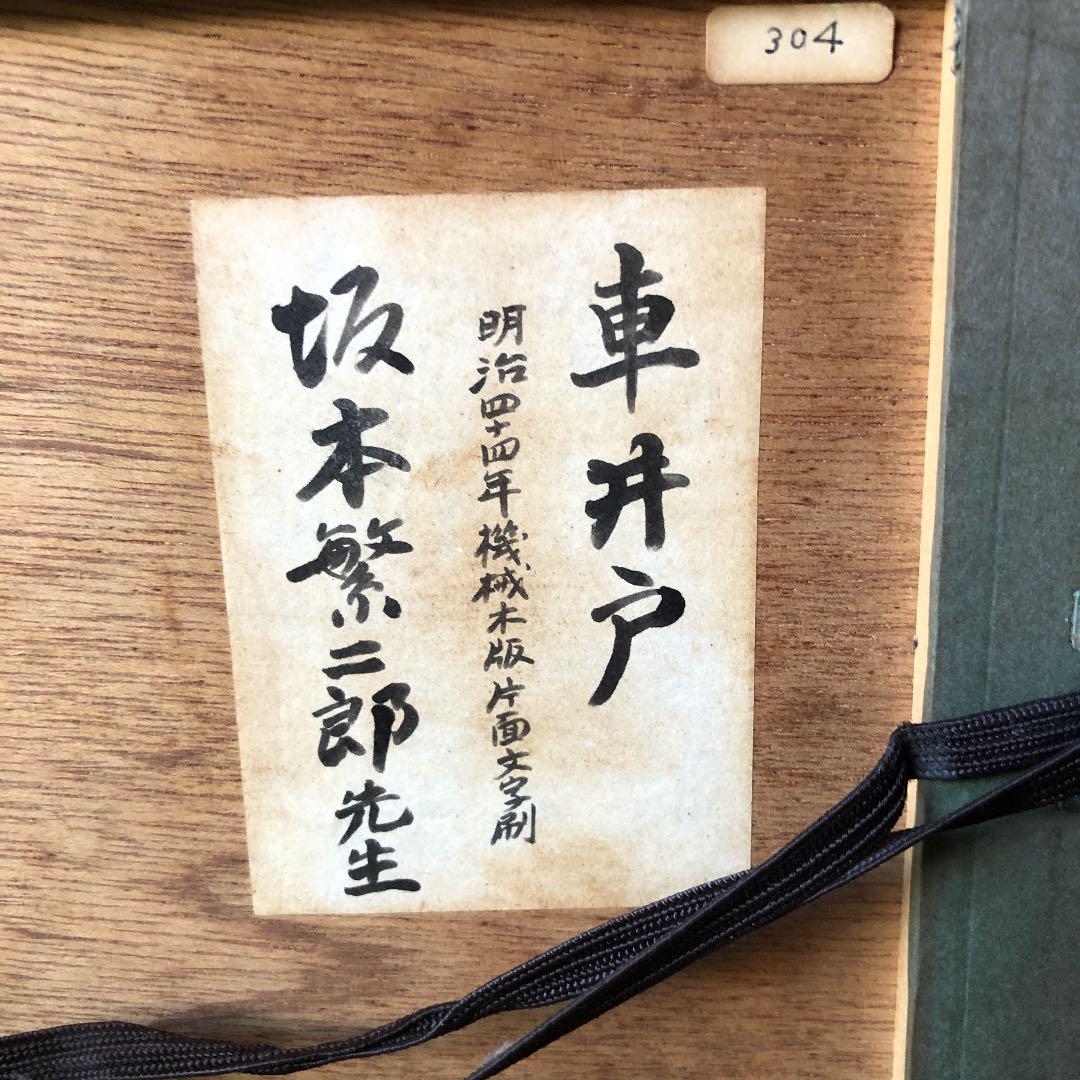 304
車井戸
明治四十四年機械木版片面文字刷
坂本繁二郎先生